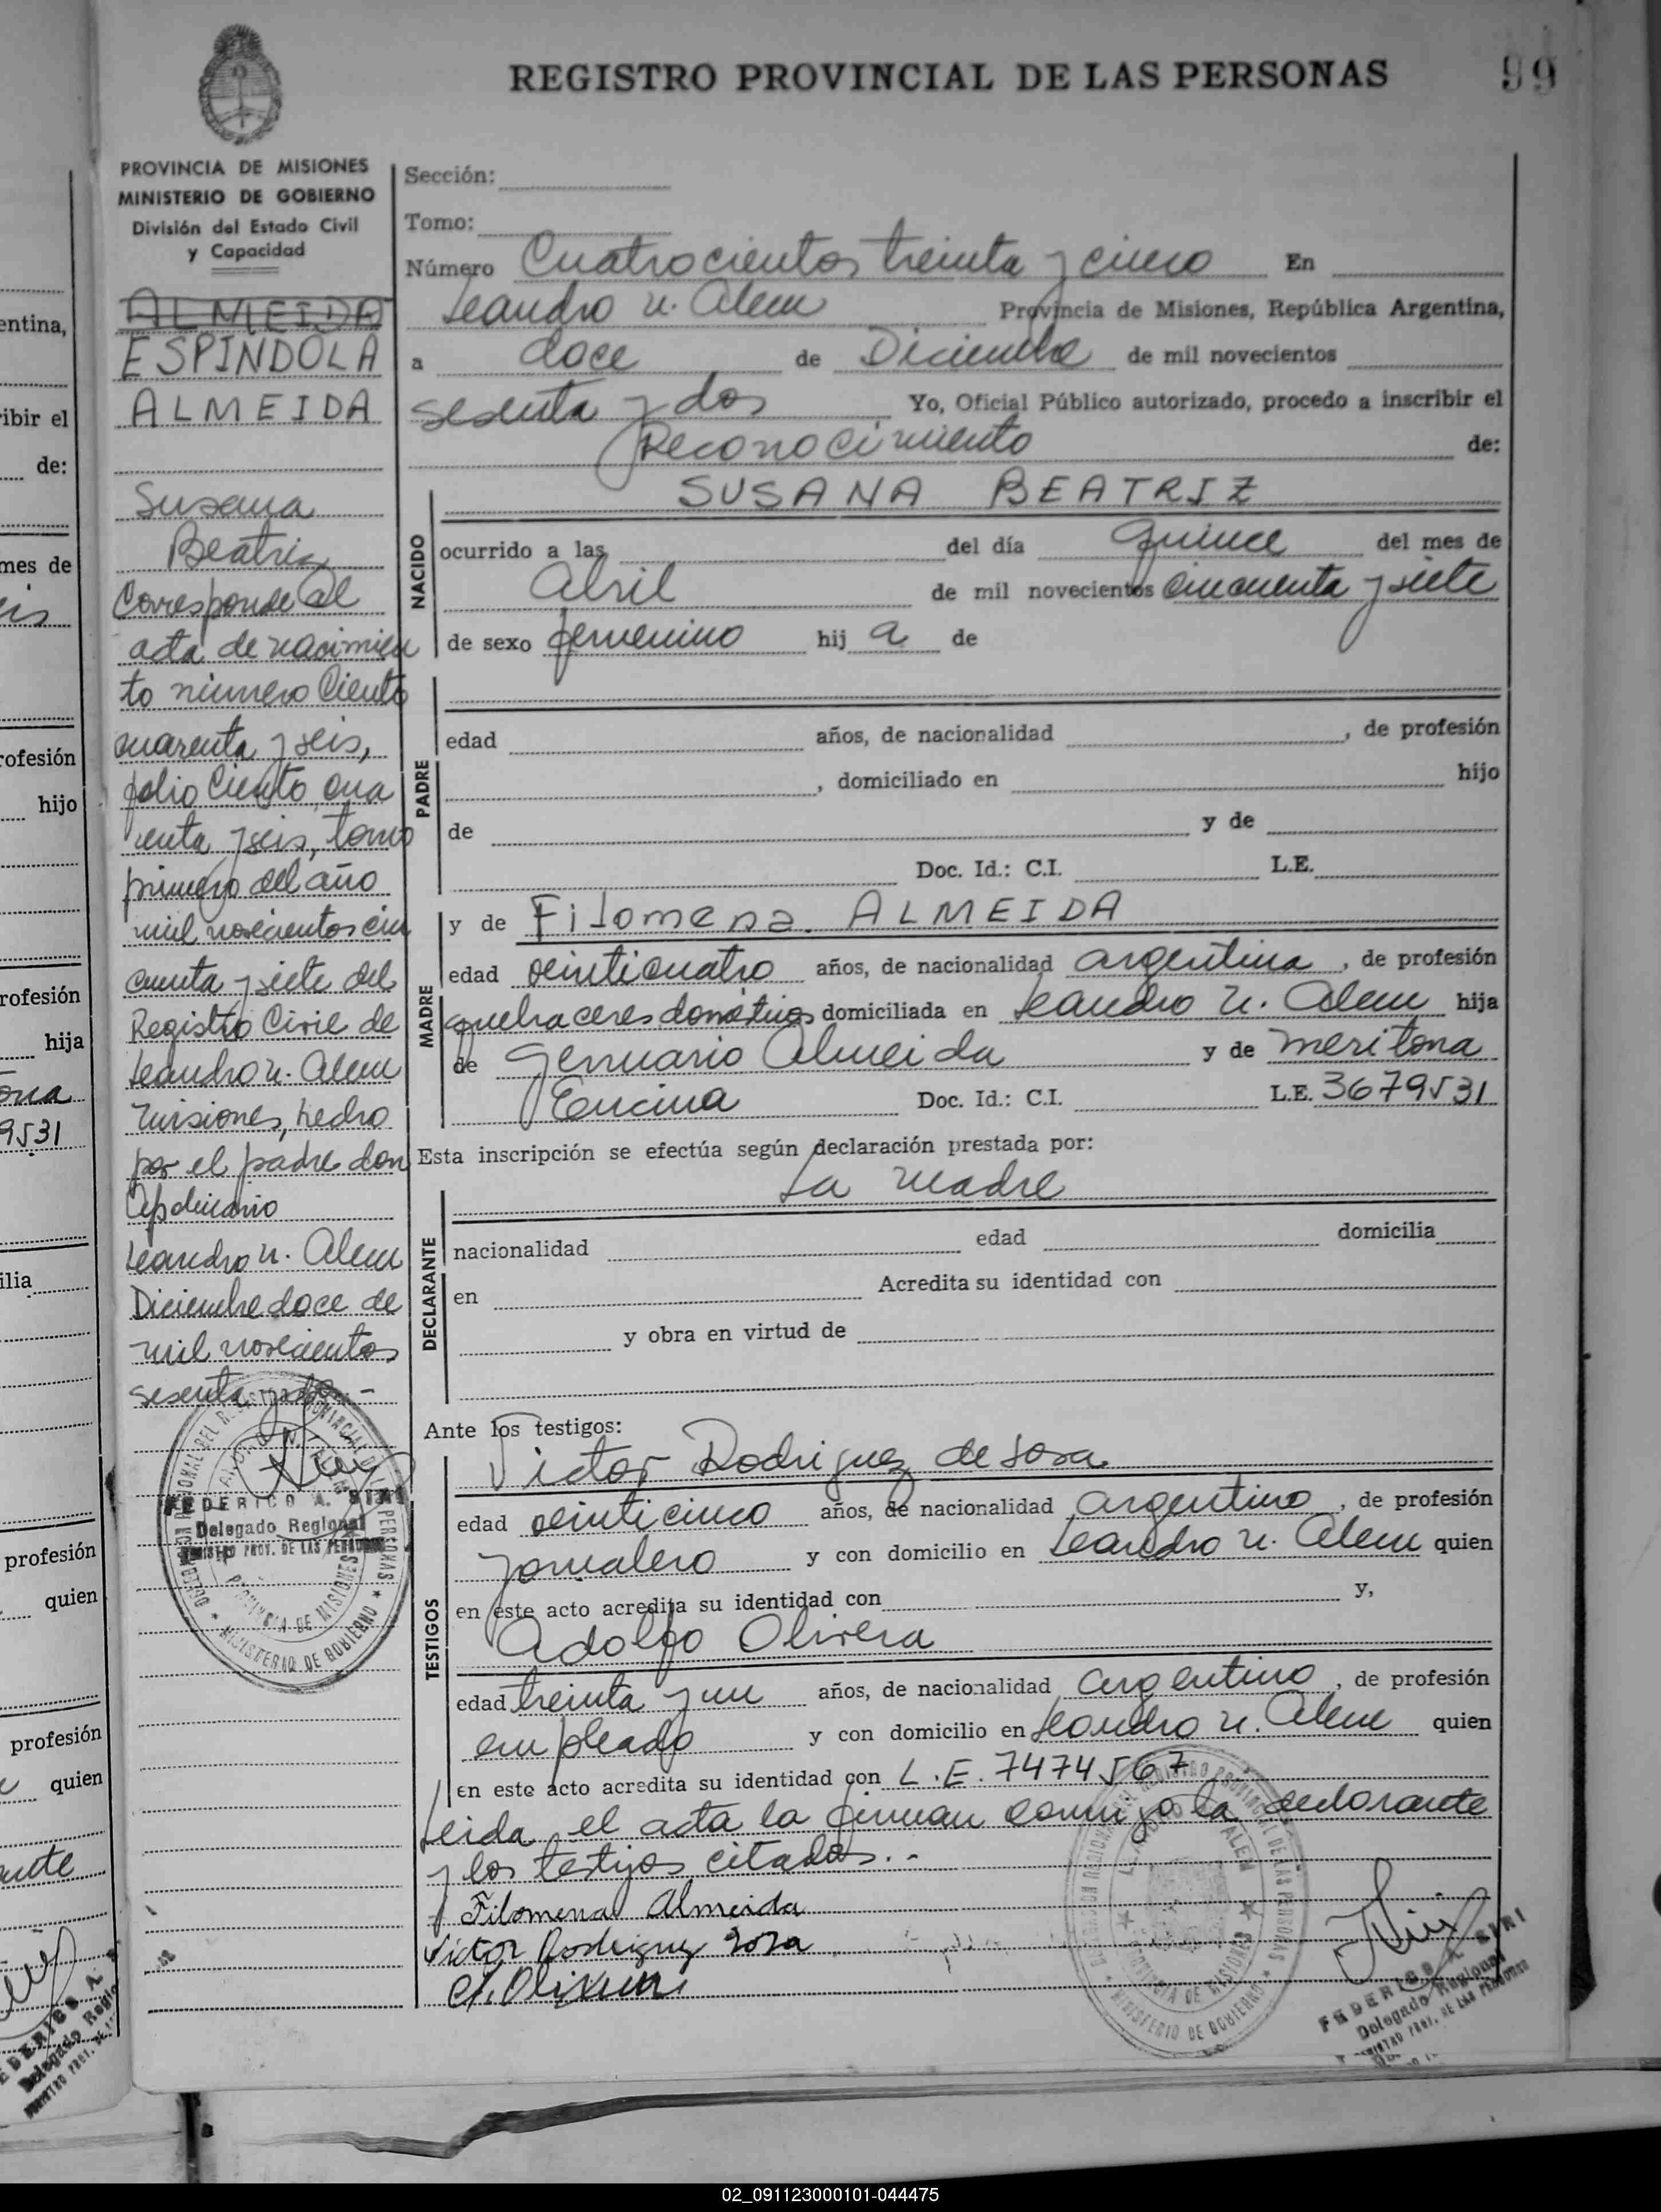 REGISTRO PROVINCIAL DE LAS PERSONAS
99
PROVINCIA DE MISIONES
MINISTERIO DE GOBIERNO
División del Estado Civil
y Capacidad
ALMEIDA
ESPINDOLA
ALMEIDA
Susana
Beatriz
Corresponde al
acta de nacimien
to número Ciento
cuarenta y seis,
folio Ciento cua
renta y seis, tomo
primero del año
mil novecientos cin
cuenta y siete del
Registro Civil de
Leandro N. Alem
Misiones, hecho
por el padre don
Leandro N. Alem
Diciembre doce de
mil novecientos
sesenta y dos.-
FEDERICO A. SIRI
Delegado Regional
REGISTRO PROV. DE LAS PERSONAS
Sección:
Tomo:
Número Cuatrocientos treinta y cinco En
Leandro N. Alem Provincia de Misiones, República Argentina,
a doce de Diciembre de mil novecientos
sesenta y dos Yo, Oficial Público autorizado, procedo a inscribir el
Reconocimiento de:
NACIDO
SUSANA BEATRIZ
ocurrido a las del día quince del mes de
Abril de mil novecientos cincuenta y siete
de sexo femenino hij a de
PADRE
edad años, de nacionalidad , de profesión
, domiciliado en hijo
de y de
Doc. Id.: C.I. L.E.
MADRE
y de Filomena ALMEIDA
edad veinticuatro años, de nacionalidad argentina, de profesión
quehaceres domésticos domiciliada en Leandro N. Alem hija
de Genuario Almeida y de Meritona
Encina Doc. Id.: C.I. L.E. 3679531
Esta inscripción se efectúa según declaración prestada por:
La Madre
DECLARANTE
nacionalidad edad domicilia
en Acredita su identidad con
y obra en virtud de
Ante los testigos:
TESTIGOS
Victor Rodriguez de Sosa
edad veinticinco años, de nacionalidad argentino, de profesión
jornalero y con domicilio en Leandro N. Alem quien
en este acto acredita su identidad con y,
Adolfo Olivera
edad treinta y un años, de nacionalidad argentino, de profesión
empleado y con domicilio en Leandro N. Alem quien
en este acto acredita su identidad con L.E. 7474567
Leida el acta la firman conmigo la declarante
y los testigos citados.-
Filomena Almeida
Victor Rodriguez Sosa
A. Olivera
FEDERICO A. SIRI
Delegado Regional
REGISTRO PROV. DE LAS PERSONAS
02_091123000101-044475